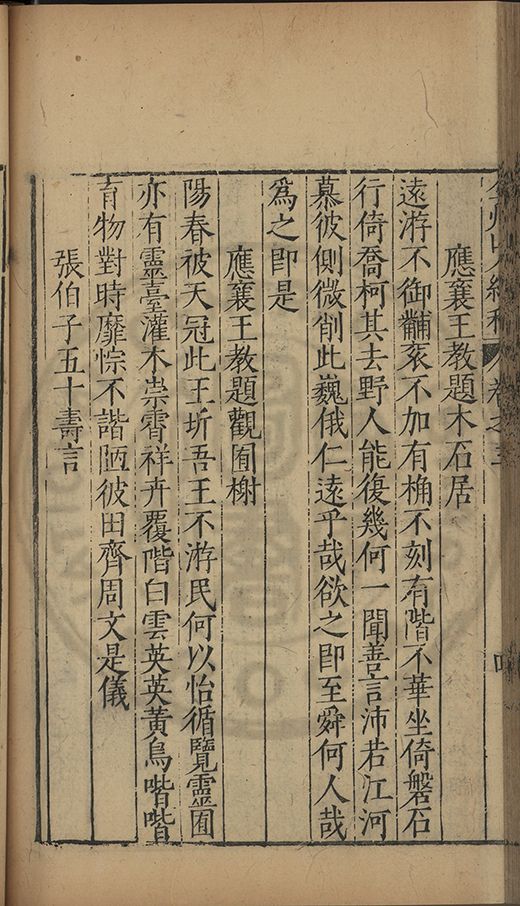 應襄王教題木石居
遠游不御黼裘不加有桷不刻有階不華坐倚磐石
行倚喬柯其去野人能復幾何一聞善言沛若江河
慕彼側微削此巍俄仁遠乎哉欲之即至舜何人哉
爲之即是
應襄王教題觀囿榭
陽春被天冠此王圻吾王不游民何以怡循覽靈囿
亦有靈臺灌木崇霄祥卉覆階白雲英英黃鳥喈喈
育物對時靡悰不諧陋彼田齊周文是儀
張伯子五十壽言